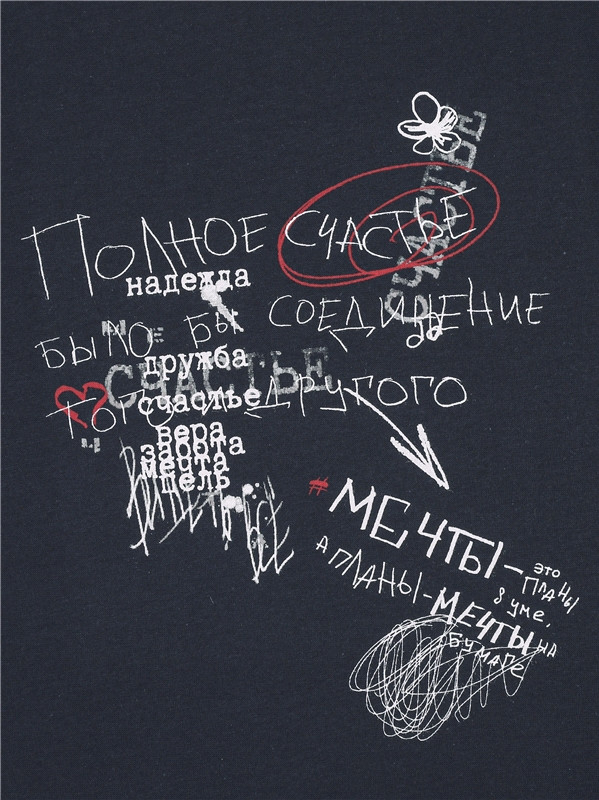 СЧАСТЬЕ
ПОЛНОЕ СЧАСТЬЕ
надежда
БЫЛО БЫ СОЕДИНЕНИЕ
дружба
СЧАСТЬЕ
ТОГО И ДРУГОГО
счастье
вера
забота
мечта
цель
#МЕЧТЫ - ЭТО
ПЛАНЫ
В УМЕ,
А ПЛАНЫ - МЕЧТЫ НА
БУМАГЕ